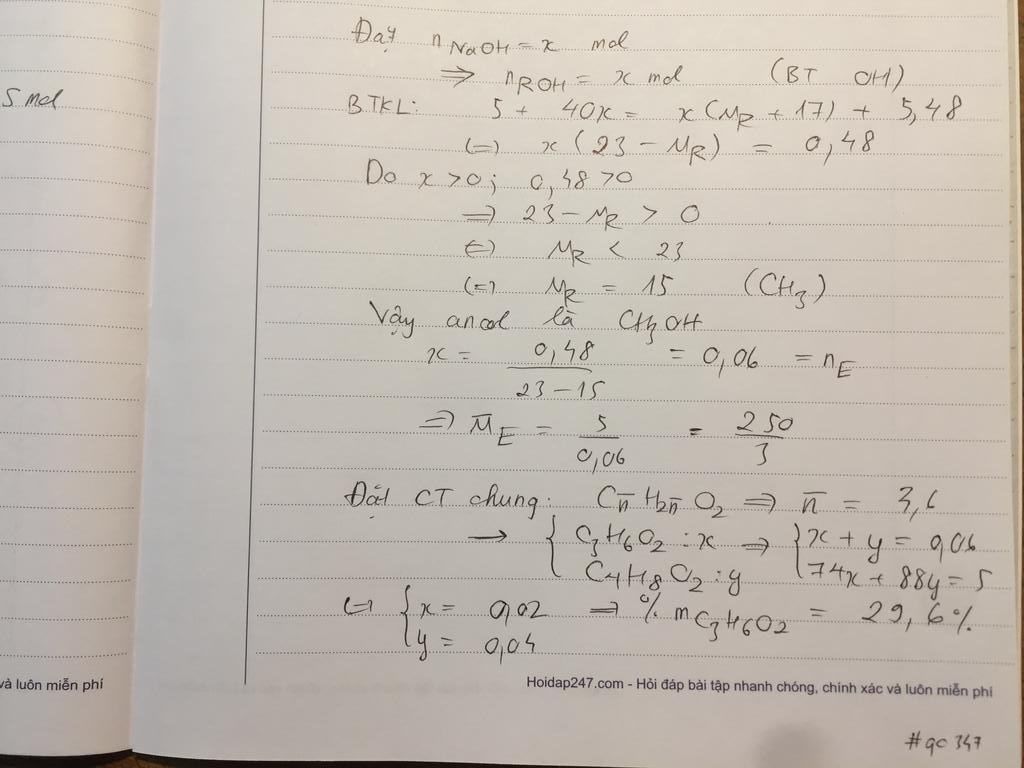 5 mol
Đặt nNaOH = x mol
=> nROH = x mol (BT OH)
BTKL: 5 + 40x = x(MR + 17) + 5,48
(=) x(23 - MR) = 0,48
Do x > 0; 0,48 > 0
=> 23 - MR > 0
(=) MR < 23
(=) MR = 15 (CH3)
Vậy ancol là CH3OH
x = 0,48 / 23 - 15 = 0,06 = nE
=> M̄E = 5 / 0,06 = 250 / 3
Đặt CT chung: Cn̄H2n̄O2 => n̄ = 3,6
→ { C3H6O2 : x => { x + y = 0,06
C4H8O2 : y 74x + 88y = 5
(=) { x = 0,02 => % mC3H6O2 = 29,6%
y = 0,04
và luôn miễn phí
Hoidap247.com - Hỏi đáp bài tập nhanh chóng, chính xác và luôn miễn phí
#gc 347